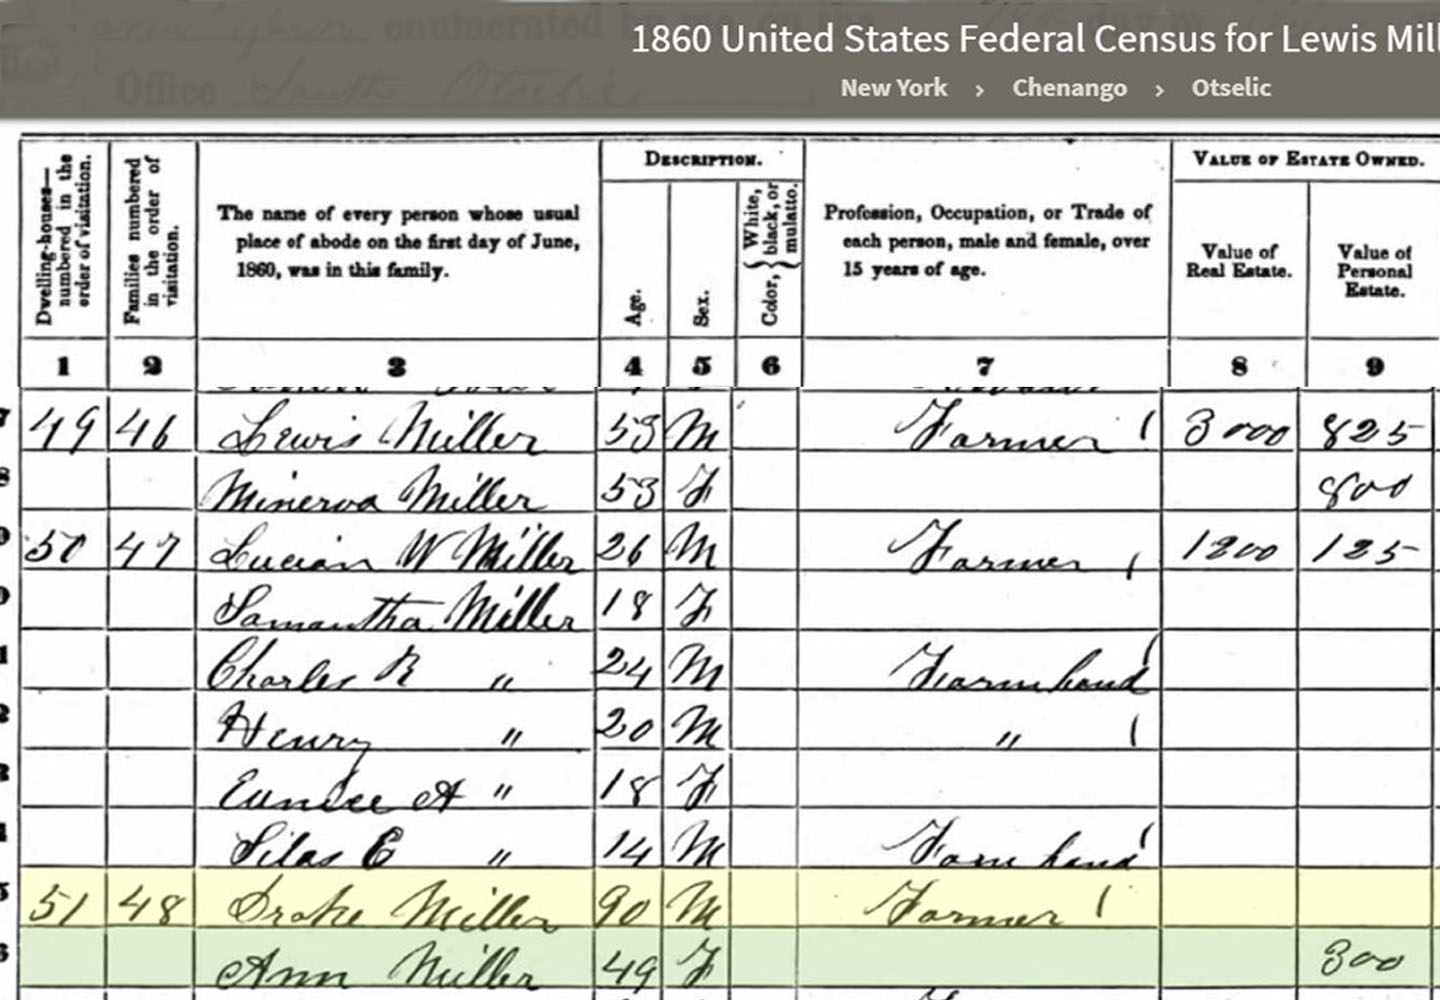 new York enumerated by me, on the day
Office South Otselic
1860 United States Federal Census for Lewis Mill
New York › Chenango › Otselic
Dwelling-houses—numbered in the order of visitation.
Families numbered in the order of visitation.
The name of every person whose usual place of abode on the first day of June, 1860, was in this family.
DESCRIPTION.
Age.
Sex.
Color, { White, black, or mulatto.
Profession, Occupation, or Trade of each person, male and female, over 15 years of age.
VALUE OF ESTATE OWNED.
Value of Real Estate.
Value of Personal Estate.
1 2 3 4 5 6 7 8 9
49 46 Lewis Miller 53 M Farmer 3000 825
Minerva Miller 53 F 800
50 47 Lucian W Miller 26 M Farmer 1200 125
Samantha Miller 18 F
Charles R " 24 M Farm hand
Henry " 20 M "
Eunice A " 18 F
Silas E " 14 M Farm hand
51 48 Drake Miller 90 M Farmer
Ann Miller 49 F 300